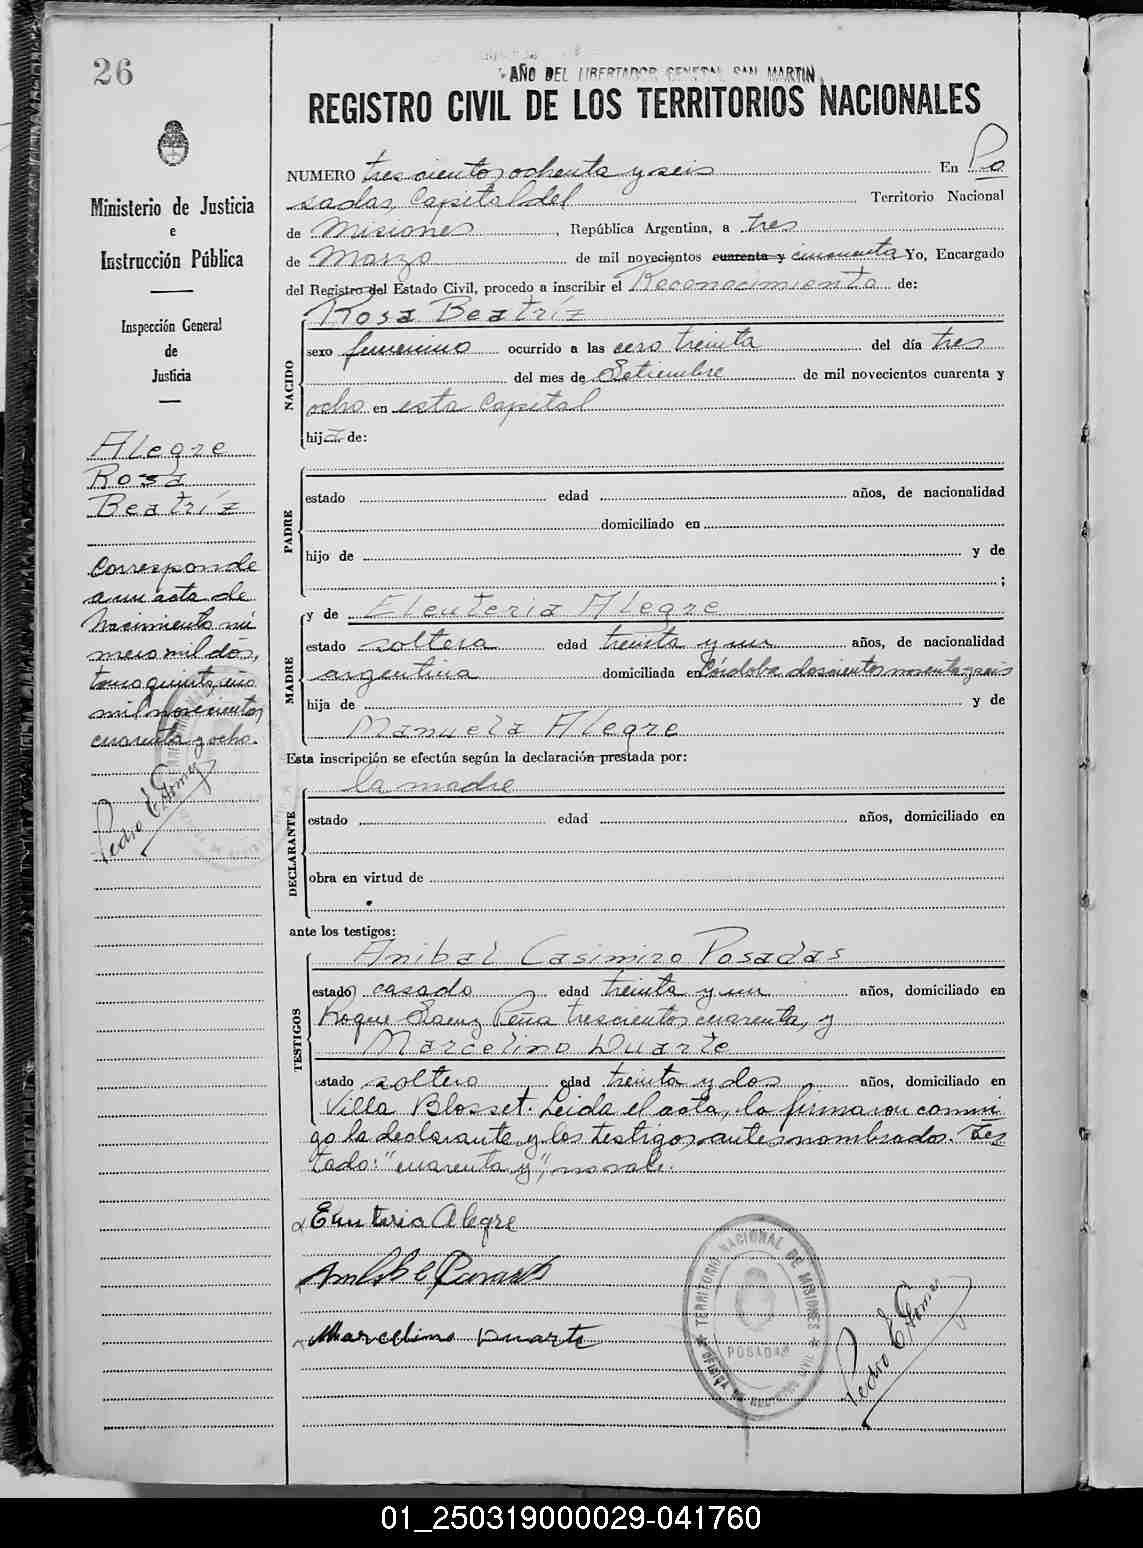 26
Ministerio de Justicia
e
Instrucción Pública
Inspección General
de
Justicia
Alegre
Rosa
Beatríz
Corresponde
a un acta de
Nacimiento nú
mero mil dos,
tomo quinto, año
mil novecientos
cuarenta y ocho.
Pedro E. Gomez
AÑO DEL LIBERTADOR GENERAL SAN MARTIN
REGISTRO CIVIL DE LOS TERRITORIOS NACIONALES
NUMERO trescientos ochenta y seis En Po
sadas, Capital del Territorio Nacional
de Misiones, República Argentina, a tres
de Marzo de mil novecientos cuarenta y cincuenta Yo, Encargado
del Registro del Estado Civil, procedo a inscribir el Reconocimiento de:
Rosa Beatríz
NACIDO
sexo femenino ocurrido a las cero treinta del día tres
del mes de Setiembre de mil novecientos cuarenta y
ocho en esta Capital
hija de:
PADRE
estado edad años, de nacionalidad
domiciliado en
hijo de y de
;
y de Eleuteria Alegre
MADRE
estado soltera edad treinta y un años, de nacionalidad
argentina domiciliada en Córdoba doscientos noventa y seis
hija de y de
Manuela Alegre
Esta inscripción se efectúa según la declaración prestada por:
la madre
DECLARANTE
estado edad años, domiciliado en
obra en virtud de
ante los testigos:
Anibal Casimiro Posadas
TESTIGOS
estado casado edad treinta y un años, domiciliado en
Roque Saenz Peña trescientos cuarenta, y
Marcelino Duarte
estado soltero edad treinta y dos años, domiciliado en
Villa Blosset. Leida el acta, la firmaron conmi
go la declarante y los testigos antes nombrados. Tes
tado: "cuarenta y", no vale.
Eleuteria Alegre
Marcelino Duarte
TERRITORIO NACIONAL DE MISIONES
POSADAS
Pedro E. Gomez
01_250319000029-041760